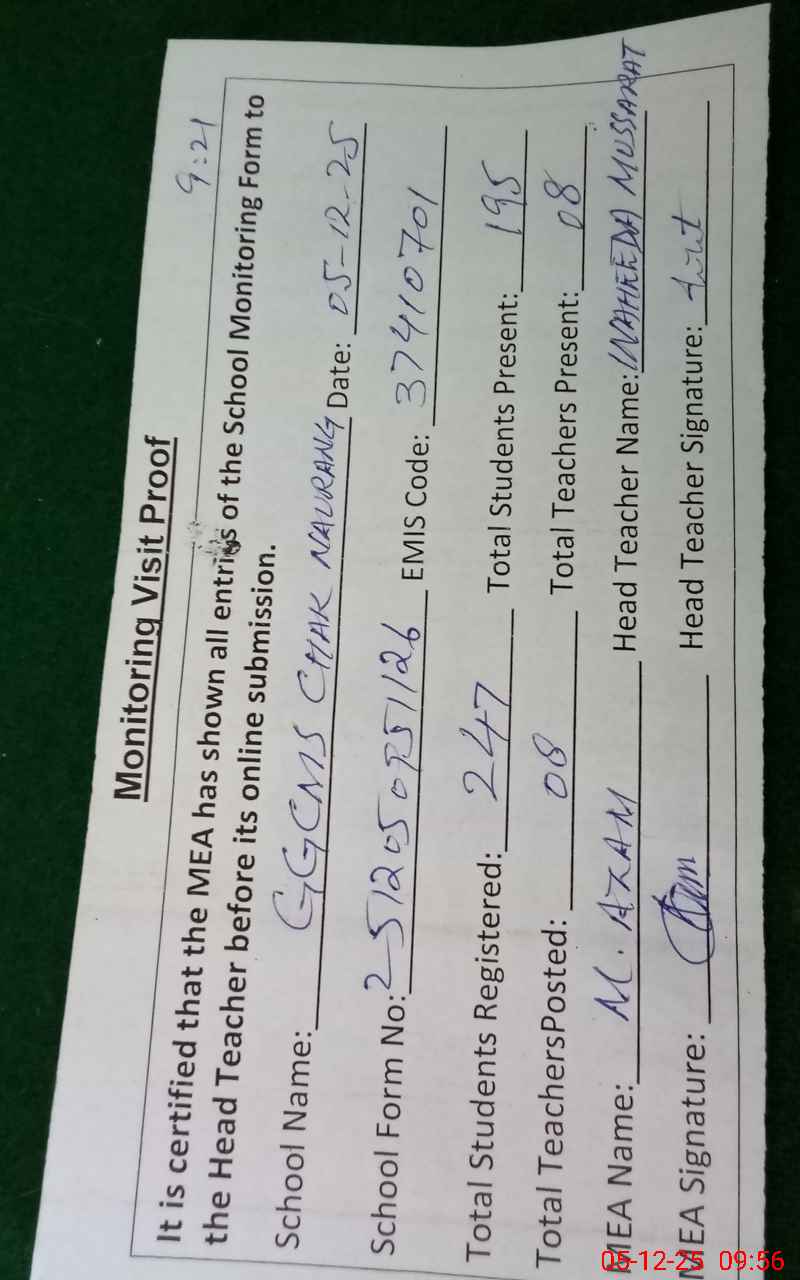 9:21
Monitoring Visit Proof
It is certified that the MEA has shown all entries of the School Monitoring Form to
the Head Teacher before its online submission.
School Name: GGCMS CHAK NAURANG Date: 05-12-25
School Form No: 2512050951126 EMIS Code: 37410701
Total Students Registered: 247 Total Students Present: 195
Total TeachersPosted: 08 Total Teachers Present: 08
MEA Name: M. AZAM Head Teacher Name: WAHEEDA MUSSARAT
MEA Signature: Head Teacher Signature:
05-12-25 09:56